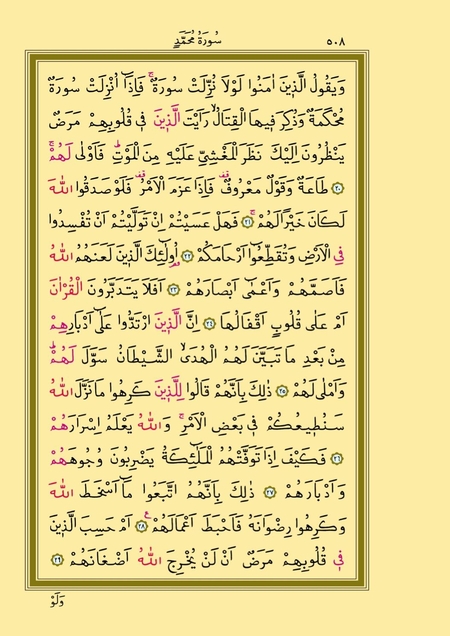 سُورَةُ مُحَمَّدٍ ٥٠٨
وَيَقُولُ الَّذٖينَ اٰمَنُوا لَوْلَا نُزِّلَتْ سُورَةٌۚ فَاِذَٓا اُنْزِلَتْ سُورَةٌ
مُحْكَمَةٌ وَذُكِرَ فٖيهَا الْقِتَالُۙ رَاَيْتَ الَّذٖينَ فٖي قُلُوبِهِمْ مَرَضٌ
يَنْظُرُونَ اِلَيْكَ نَظَرَ الْمَغْشِيِّ عَلَيْهِ مِنَ الْمَوْتِؕ فَاَوْلٰى لَهُمْۚ
﴿٢٠﴾ طَاعَةٌ وَقَوْلٌ مَعْرُوفٌ۠ فَاِذَا عَزَمَ الْاَمْرُ۠ فَلَوْ صَدَقُوا اللّٰهَ
لَكَانَ خَيْراً لَهُمْۚ ﴿٢١﴾ فَهَلْ عَسَيْتُمْ اِنْ تَوَلَّيْتُمْ اَنْ تُفْسِدُوا
فِي الْاَرْضِ وَتُقَطِّعُٓوا اَرْحَامَكُمْ ﴿٢٢﴾ اُو۬لٰٓئِكَ الَّذٖينَ لَعَنَهُمُ اللّٰهُ
فَاَصَمَّهُمْ وَاَعْمٰٓى اَبْصَارَهُمْ ﴿٢٣﴾ اَفَلَا يَتَدَبَّرُونَ الْقُرْاٰنَ
اَمْ عَلٰى قُلُوبٍ اَقْفَالُهَا ﴿٢٤﴾ اِنَّ الَّذٖينَ ارْتَدُّوا عَلٰٓى اَدْبَارِهِمْ
مِنْ بَعْدِ مَا تَبَيَّنَ لَهُمُ الْهُدَىۙ الشَّيْطَانُ سَوَّلَ لَهُمْؕ
وَاَمْلٰى لَهُمْ ﴿٢٥﴾ ذٰلِكَ بِاَنَّهُمْ قَالُوا لِلَّذٖينَ كَرِهُوا مَا نَزَّلَ اللّٰهُ
سَنُطٖيعُكُمْ فٖي بَعْضِ الْاَمْرِۚ وَاللّٰهُ يَعْلَمُ اِسْرَارَهُمْ
﴿٢٦﴾ فَكَيْفَ اِذَا تَوَفَّتْهُمُ الْمَلٰٓئِكَةُ يَضْرِبُونَ وُجُوهَهُمْ
وَاَدْبَارَهُمْ ﴿٢٧﴾ ذٰلِكَ بِاَنَّهُمُ اتَّبَعُوا مَٓا اَسْخَطَ اللّٰهَ
وَكَرِهُوا رِضْوَانَهُ فَاَحْبَطَ اَعْمَالَهُمْࣖ ﴿٢٨﴾ اَمْ حَسِبَ الَّذٖينَ
فٖي قُلُوبِهِمْ مَرَضٌ اَنْ لَنْ يُخْرِجَ اللّٰهُ اَضْغَانَهُمْ ﴿٢٩﴾
وَلَوْ